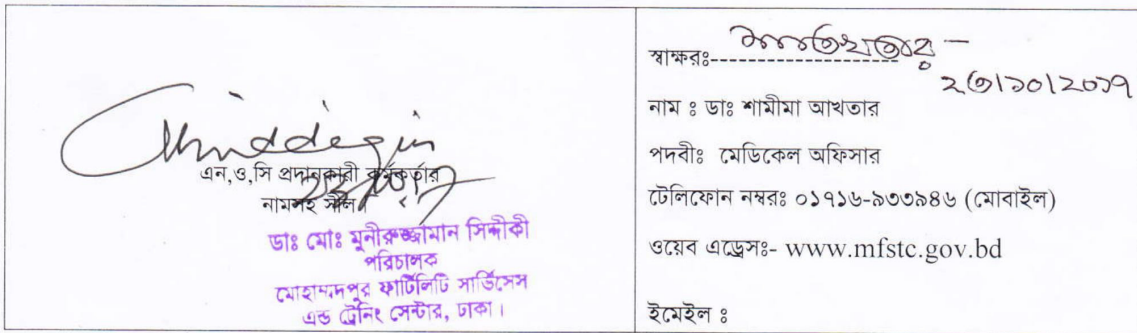 এন,ও,সি প্রদানকারী কর্মকর্তার
নামসহ সীল।
ডাঃ মোঃ মুনীরুজ্জামান সিদ্দীকী
পরিচালক
মোহাম্মদপুর ফার্টিলিটি সার্ভিসেস
এন্ড ট্রেনিং সেন্টার, ঢাকা।
স্বাক্ষরঃ--------------------
নাম ঃ ডাঃ শামীমা আখতার
পদবীঃ মেডিকেল অফিসার
টেলিফোন নম্বরঃ ০১৭১৬-৯৩৩৯৪৬ (মোবাইল)
ওয়েব এড্রেসঃ- www.mfstc.gov.bd
ইমেইল ঃ